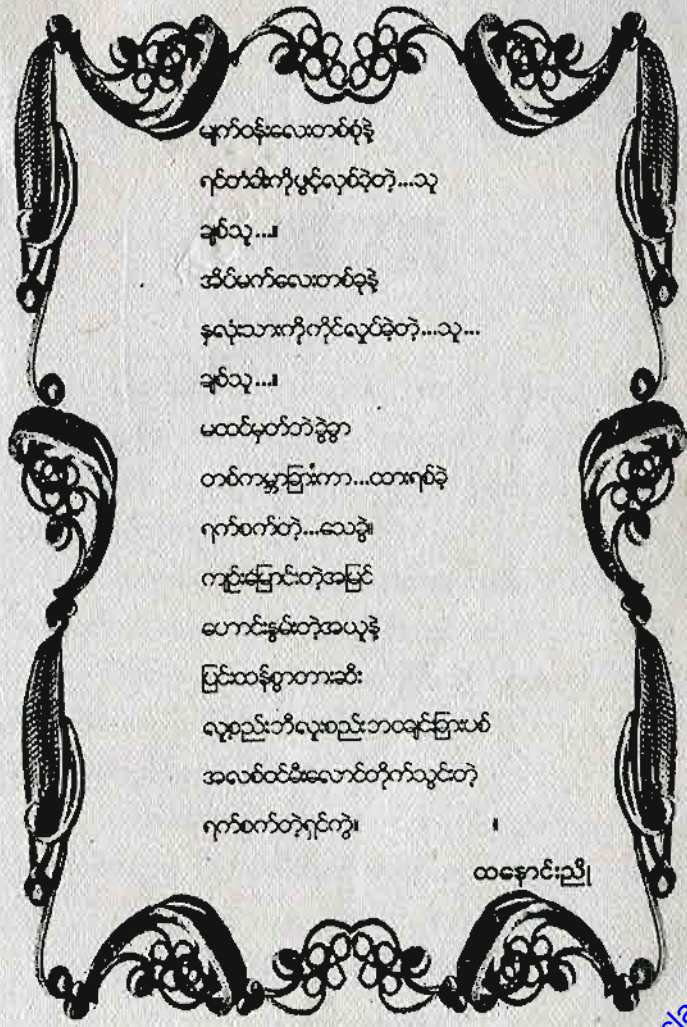 မျက်ဝန်းလေးတစ်စုံနဲ့
ရင်တံခါးကိုဖွင့်လှစ်ခဲ့တဲ့...သူ
ချစ်သူ...။
အိပ်မက်လေးတစ်ခုနဲ့
နှလုံးသားကိုကိုင်လှုပ်ခဲ့တဲ့...သူ...
ချစ်သူ...။
မထင်မှတ်ဘဲခွဲခွာ
တစ်ကမ္ဘာခြားကာ...ထားရစ်ခဲ့
ရက်စက်တဲ့...သေခွဲ။
ကျဉ်းမြောင်းတဲ့အမြင်
ဟောင်းနွမ်းတဲ့အယူနဲ့
ပြင်းထန်စွာတားဆီး
လူ့စည်းဘီလူးစည်းဘဝချင်းခြားပစ်
အလစ်ဝင်မီးလောင်တိုက်သွင်းတဲ့
ရက်စက်တဲ့ရှင်ကွဲ။ ။
ထနောင်းညို